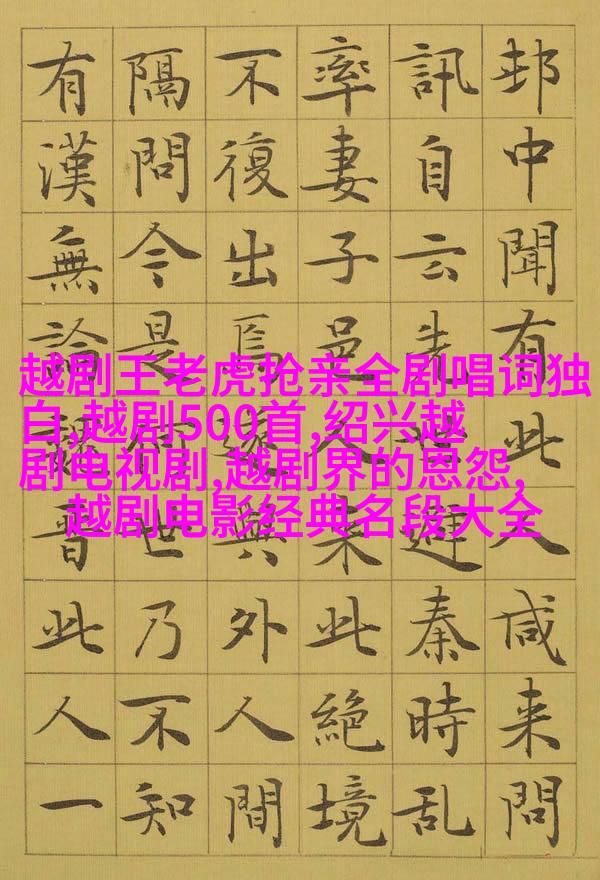 邨中聞有此人咸来問
訊自云先世避秦時乱
率妻子邑人来此絶境
不復出焉遂與外人間
隔問今是何世乃不知
有漢無論魏晋此人一
越剧王老虎抢亲全剧唱词独
白,越剧500首,绍兴越
剧电视剧,越剧界的恩怨,
越剧电影经典名段大全